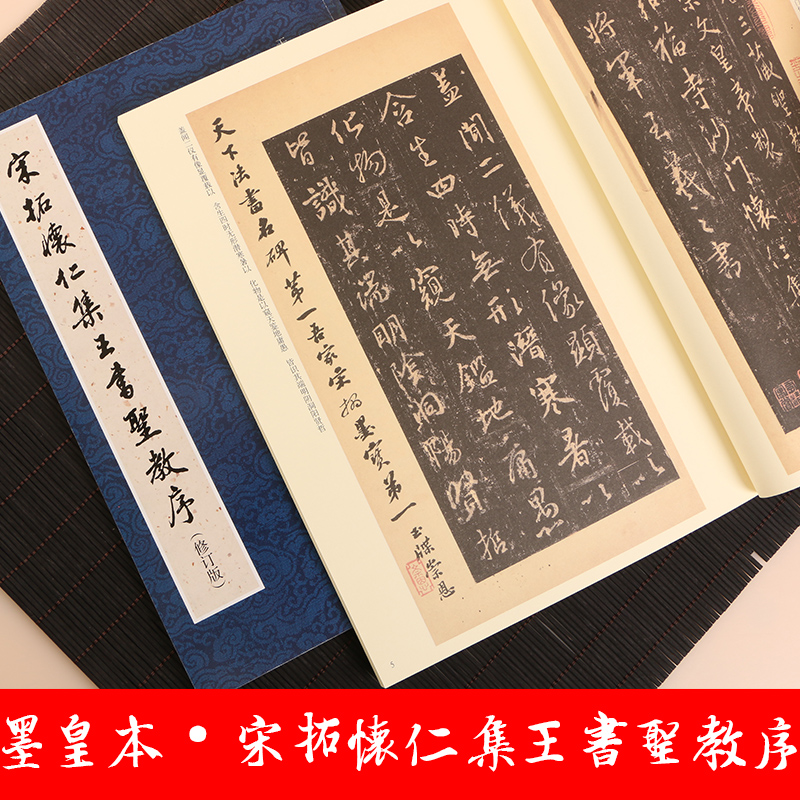 宋拓懷仁集王書聖教序
(修订版)
三藏聖
文皇帝製
福寺沙門懷仁集
將軍王羲之書
蓋聞二儀有像顯覆載以
含生四時無形潛寒暑以
化物是以窺天鑑地庸愚
皆識其端明陰洞陽賢哲
天下法書名碑第一吾家宋搨墨寶第一 玉牒崇恩
盖闻二仪有像显覆载以 含生四时无形潜寒暑以 化物是以窥天鉴地庸愚 皆识其端明阴洞阳贤哲
5
墨皇本·宋拓懷仁集王書聖教序